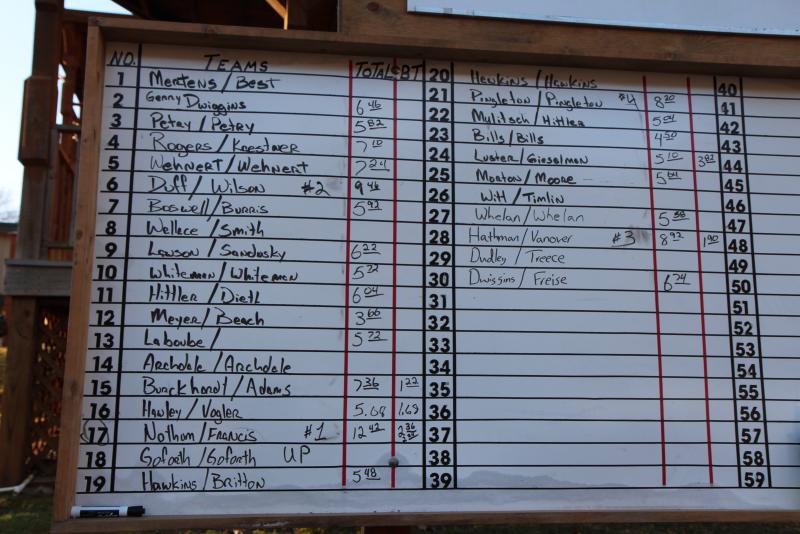 NO. TEAMS TOTAL BT
1 Mertens/Best
2 Genny Dwiggins 6 46
3 Petry/Petry 5 82
4 Rogers/Koestner 7 10
5 Wehnert/Wehnert 7 24
6 Duff/Wilson #2 9 46
7 Boswell/Burris 5 92
8 Wellece/Smith
9 Lawson/Sandusky 6 22
10 Whiteman/Whiteman 5 22
11 Hittler/Dietl 6 04
12 Meyer/Beach 3 66
13 Laboube/ 5 72
14 Archdale/Archdale
15 Burckhardt/Adams 7 36 1 22
16 Hawley/Vogler 5.08 1.69
17 Nothum/Francis #1 12 42 2 36
18 Goforth/Goforth UP
19 Hawkins/Britton 5 48
20 Hawkins/Hawkins
21 Pingleton/Pingleton #4 8 20
22 Mulitsch/Hittler 5 04
23 Bills/Bills 4 50
24 Luster/Gieselman 5 10 3 82
25 Morton/Moore 5 64
26 Witt/Timlin
27 Whelan/Whelan 5 38
28 Hathman/Vanover #3 8 92 1 90
29 Dudley/Treece
30 Dwiggins/Freise 6 74
31
32
33
34
35
36
37
38
39
40
41
42
43
44
45
46
47
48
49
50
51
52
53
54
55
56
57
58
59